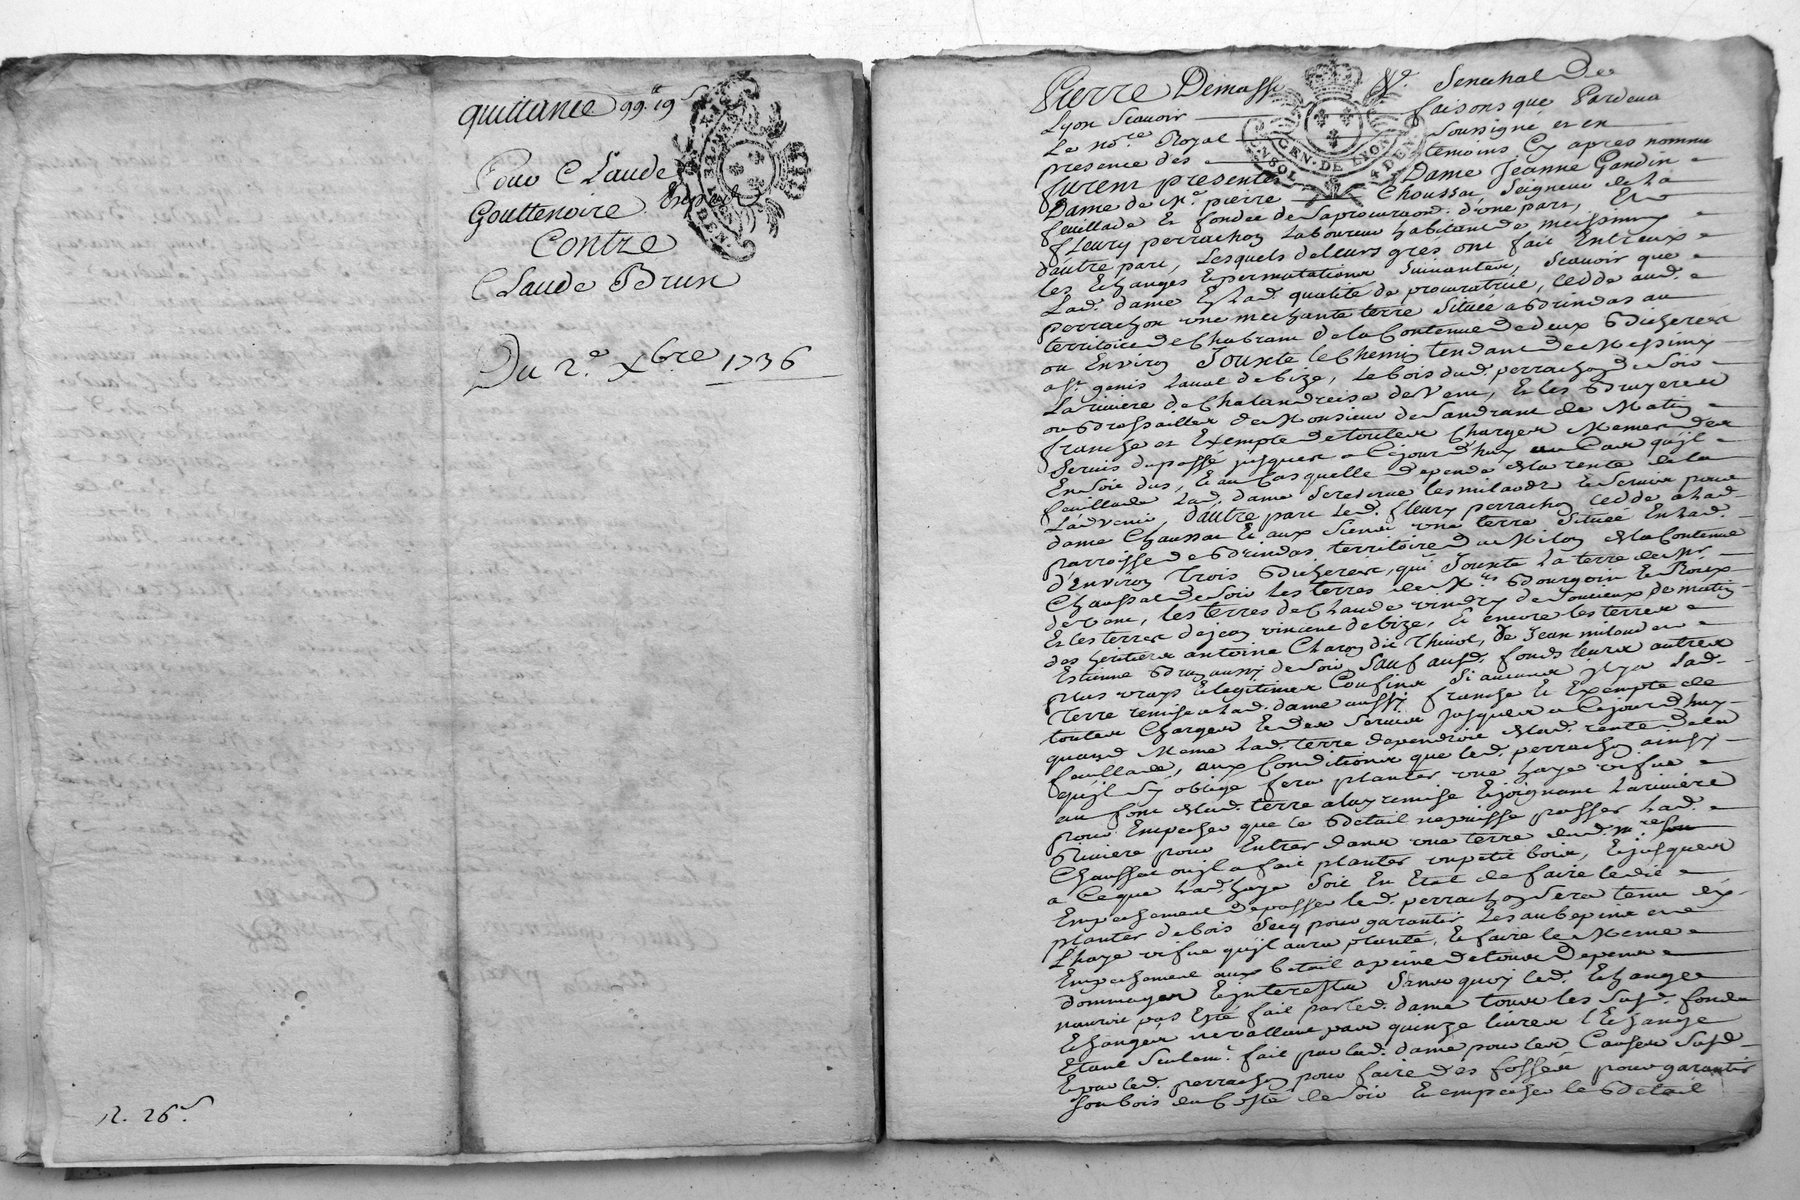 quittance 99# 19s
Pour Claude
Gouttenoire
Contre
Claude Brun
Du 2e Xbre 1736
GEN. DE LYON
Pierre Demasse Sr. Senechal de
Lyon Scavoir faisons que Pardevant
Le nore Royal soussigné et en
presence des temoins Cy apres nommés
furent presents Dame Jeanne Gandin
Dame de Mr. pierre Choussat Seigneur de la
feuillade et fondée de sa procuraon. d'une part, Et
fleury perrachon Laboureur habitant de messimy
d'autre part, Lesquels de leurs gres ont fait Entreux
les Echanges et permutations suivantes, Scavoir que
Lad. dame Esd. qualité de procuratrice, cedde aud.
perrachon une meschante terre Située a Brindas au
territoire de Chabrant de la Contenue de deux Bicherées
ou Environ Jouxte le Chemin tendant de Messimy
a st. genis Laval de bize, Le bois dud. perrachon de Soir
La riviere de Chalandreise de Vent, Et les Bruyeres
ou Brossailles de Monsieur de Sandrant de Matin
franche et Exempte de toutes Charges Memes des
servis du passé jusques a Cejourdhuy au Cas quil
En Soit dus, Et au Cas quelle depende de la rente de la
feuillade Lad. dame Se reserve les milaods et Servis pour
L'advenir, D'autre part Led. fleury perrachon cedde a Lad.
dame Chaussat et aux Siens une terre Située En Lad.
parroisse de Brindas territoire de Milon de la Contenue
d'Environ trois Bicherées, qui Jouxte La terre de Mr
Chaussat de Soir les terres de Mrs Bourgoin et Roux
de vent, les terres de Claude vindry de Soucieux de matin
Et les terres de jean vincent de bize, Et encore les terres
des heritiers antoine Charon dit Thivol, de Jean milond
Estienne Brun aussy de Soir Sauf ausd. fonds leurs autres
plus vrays et legitimes Confins Si aucuns il y a Lad.
terre remise a Lad. dame aussy franche et Exempte de
toutes Charges et des Servis jusques a Cejourdhuy
quand Meme Lad. terre dependroit de Lad. rente de la
feuillade, aux Conditions que led. perrachon ainsy
quil Sy oblige fera planter une haye vifve
au fond de Lad. terre a luy remise et joignant la riviere
pour Empecher que le Betail ne puisse passer Lad.
Riviere pour Entrer dans une terre dud. Mre
Chaussat ou il a fait planter un petit bois, et jusques
a Ceque Lad. haye Soit En Etat de faire ledit
Empechement de passer led. perrachon Sera tenu de
planter de bois Secq pour garantir Les aubepins et
L'haye vifve quil aura planté, Et faire le Meme
Empechement aux betail a peine de tous depens
dommages et interests Sans quoy led. Echange
nauroit pas Esté fait par led. dame tous les Susd. fonds
Echangés ne vallant pas quinze livres l'Echange
Etant Seulemt. fait par lad. dame pour les Causes Susd.
Et par led. perrachon pour faire des fossés pour garantir
Son bois du Costé de Soir Et empecher le Betail
R. 26s.